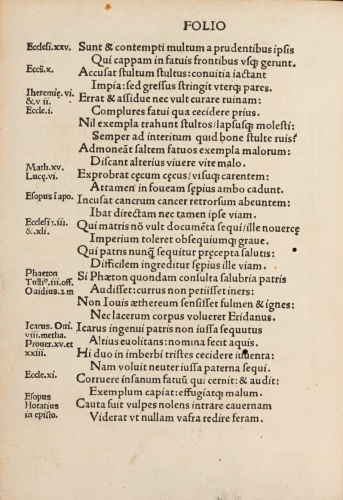 FOLIO
Ecclesi.xxv. Sunt & contempti multum a prudentibus ipsis
Qui cappam in fatuis frontibus vsq; gerunt.
Eccſ.x. Accusat stultum stultus: conuitia iactant
Impia: sed gressus stringit vterq; pares.
Iheremię. vi. & v ii. Errat & assidue nec vult curare ruinam:
Eccle.i. Complures fatui qua cecidere prius.
Nil exempla trahunt stultos/lapsusq; molesti:
Semper ad interitum quid bone stulte ruis?
Admoneāt saltem fatuos exempla malorum:
Discant alterius viuere vite malo.
Math.xv. Exprobrat cęcum cęcus/visuq; carentem:
Lucę.vi. Attamen in foueam sępius ambo cadunt.
Esopus i apo. Incusat cancrum cancer retrorsum abeuntem:
Ibat directam nec tamen ipse viam.
Ecclesi:.iii. & .xli. Qui matris nō vult documēta sequi/ille nouercę
Imperium toleret obsequiumq; graue.
Qui patris nunq̄ sequitur pręcepta salutis:
Difficilem ingreditur sępius ille viam.
Phaeton Si Phæton quondam consulta salubria patris
Tulliꝰ.iii.off. Audisset: currus non petiisset iners:
Ouidius.2 m Non Iouis æthereum sensisset fulmen & ignes:
Nec lacerum corpus volueret Eridanus.
Icarus. Oui. Icarus ingenui patris non iussa sequutus
viii.metha. Altius euolitans: nomina fecit aquis.
Prouer.xv.et xxiii. Hi duo in imberbi tristes cecidere iuuenta:
Nam voluit neuter iussa paterna sequi.
Eccle.xi. Corruere insanum fatuū qui cernit: & audit:
Exemplum capiat: effugiatq; malum.
Esopus Cauta fuit vulpes nolens intrare cauernam
Horatius in episto. Viderat vt nullam vafra redire feram.